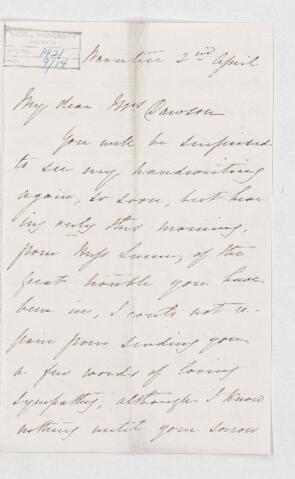 McGILL UNIVERSITY
ARCHIVES
ACC. NO. 1921
REF. 9/14
2nd April
My dear Mrs Dawson
You will be surprised
to see my handwriting
again, so soon, but hear-
ing only this morning,
from Miss of the
great trouble you have
been in, I could not re-
frain from sending you
a few words of loving
sympathy, although I know
nothing until your sorrow